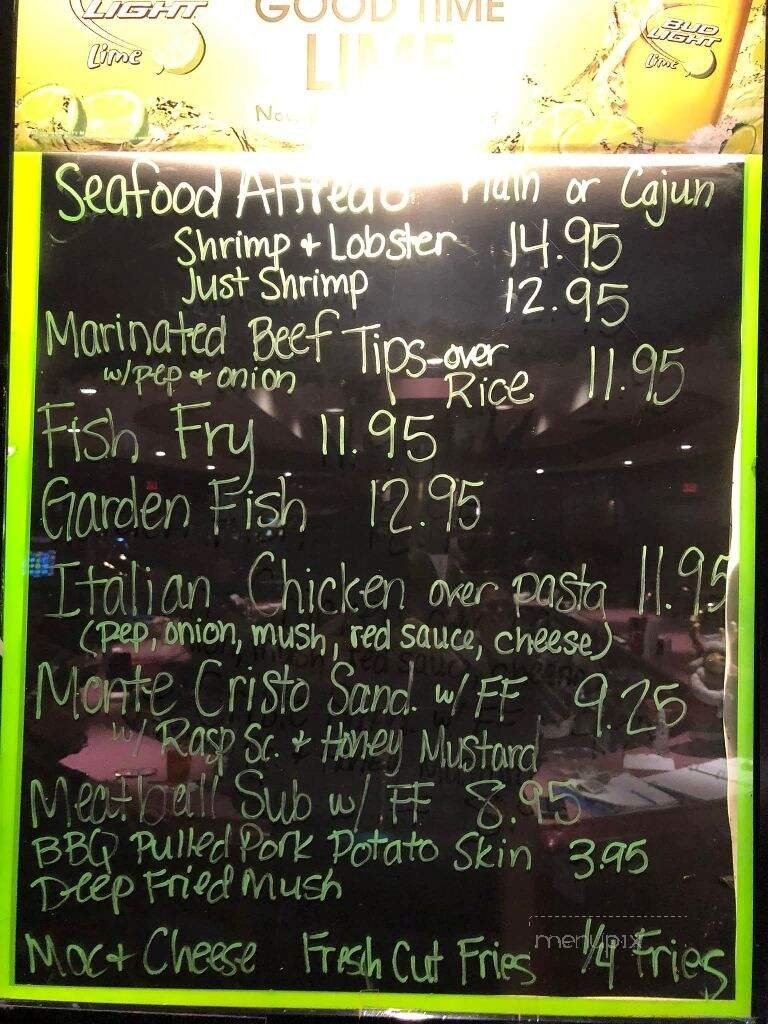 LIGHT
Lime
GOOD TIME
LIME
BUD
LIGHT
Lime
Seafood Alfredo Plain or Cajun
Shrimp + Lobster 14.95
Just Shrimp 12.95
Marinated Beef Tips-over
w/pep + onion Rice 11.95
Fish Fry 11.95
Garden Fish 12.95
Italian Chicken over pasta 11.95
(pep, onion, mush, red sauce, cheese)
Monte Cristo Sand. w/ FF 9.25
w/ Rasp Sc. + Honey Mustard
Meatball Sub w/ FF 8.95
BBQ Pulled Pork Potato Skin 3.95
Deep Fried Mush
menupix
Mac + Cheese Fresh Cut Fries 1/4 Fries